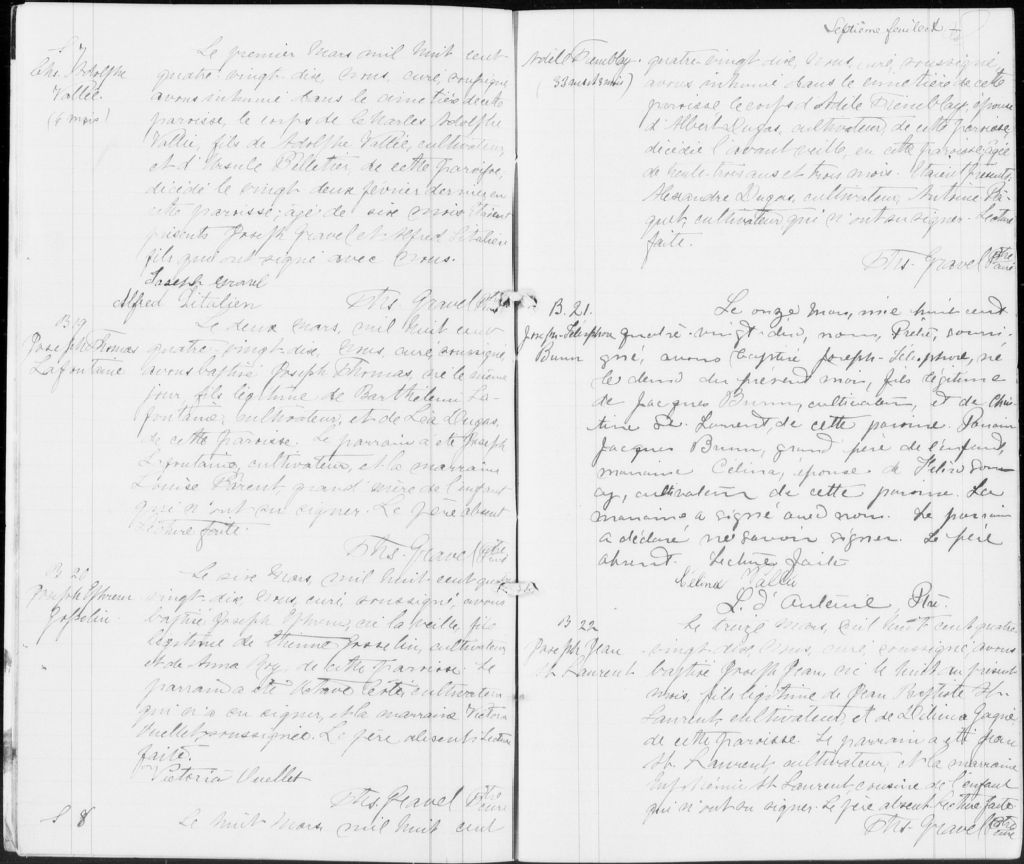 S 7
Chs. Adolphe
Vallée.
(6 mois)
Le premier Mars mil huit cent
quatre vingt-dix, Nous, curé, soussigné
avons inhumé dans le cimetière de cette
paroisse, le corps de Charles Adolphe
Vallée, fils de Adolphe Vallée, cultivateur,
et d'Ursule Pelletier, de cette paroisse,
décédé le vingt deux février dernier en
cette paroisse; âgé de six mois. Etaient
présents Joseph Gravel et Alfred Litalien
fils qui ont signé avec Nous.
Joseph Gravel
Alfred Litalien
Ths. Gravel Ptre
B 19
Joseph Thomas
Lafontaine
Le deux Mars, mil huit cent
quatre-vingt-dix, Nous, curé, soussigné
avons baptisé Joseph Thomas, né le même
jour, fils légitime de Barthélemi La-
fontaine, cultivateur, et de Léa Dugas,
de cette paroisse. Le parrain a été Joseph
Lafontaine, cultivateur, et la marraine
Louise Parent, grand'mère de l'enfant
qui n'ont su signer. Le père absent
Lecture faite.
Ths. Gravel Ptre
B 20
Joseph Ephrem
Gosselin.
Le six Mars, mil huit-cent quatre
vingt-dix, Nous, curé, soussigné, avons
baptisé Joseph Ephrem, né la veille, fils
légitime de Etienne Gosselin, cultivateur,
et de Anna Roy, de cette paroisse. Le
parrain a été Octave cultivateur
qui n'a su signer, et la marraine Victoria
Ouellet soussignée. Le père absent. Lecture
faite.
Victoria Ouellet
Ths. Gravel Ptre curé
S 8
Le huit Mars, mil huit cent
Septième feuillet
Adèle Tremblay.
(33 ans 3 mois)
quatre vingt-dix, Nous, curé, soussigné,
avons inhumé dans le cimetière de cette
paroisse le corps d'Adèle Tremblay, épouse
d'Albert Dugas, cultivateur, de cette paroisse,
décédée l'avant veille, en cette paroisse, âgée
de trente-trois ans et trois mois. Etaient présents
Alexandre Dugas, cultivateur, Antoine Pâ-
quet, cultivateur qui n'ont su signer. Lecture
faite.
Ths. Gravel Ptre Curé
B. 21.
Joseph-Télesphore
Bunn
Le onze Mars, mil huit cent
quatre-vingt-dix, nous, Prêtre, soussi-
gné, avons baptisé Joseph-Télesphore, né
le deux du présent mois, fils légitime
de Jacques Bunn, cultivateur, et de Chris-
tine St. Laurent, de cette paroisse. Parrain
Jacques Bunn, grand père de l'enfant,
marraine Célina, épouse de
cultivateur de cette paroisse. La
marraine a signé avec nous. Le parrain
a déclaré ne savoir signer. Le père
absent. Lecture faite
Célina Vallée
L. d'Auteuil, Ptre
B 22
Joseph Jean
St Laurent
Le treize Mars, mil huit cent quatre
vingt-dix Nous, curé, soussigné avons
baptisé Joseph Jean, né le huit du présent
mois, fils légitime de Jean Baptiste St-
Laurent, cultivateur, et de Délima Gagné
de cette paroisse. Le parrain a été Jean
St. Laurent, cultivateur, et la marraine
Euphémie St Laurent, cousine de l'enfant
qui n'ont su signer. Le père absent. Lecture faite
Ths. Gravel Ptre curé